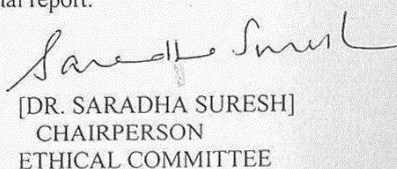 nal report.
Saradha Suresh
[DR. SARADHA SURESH]
CHAIRPERSON
ETHICAL COMMITTEE